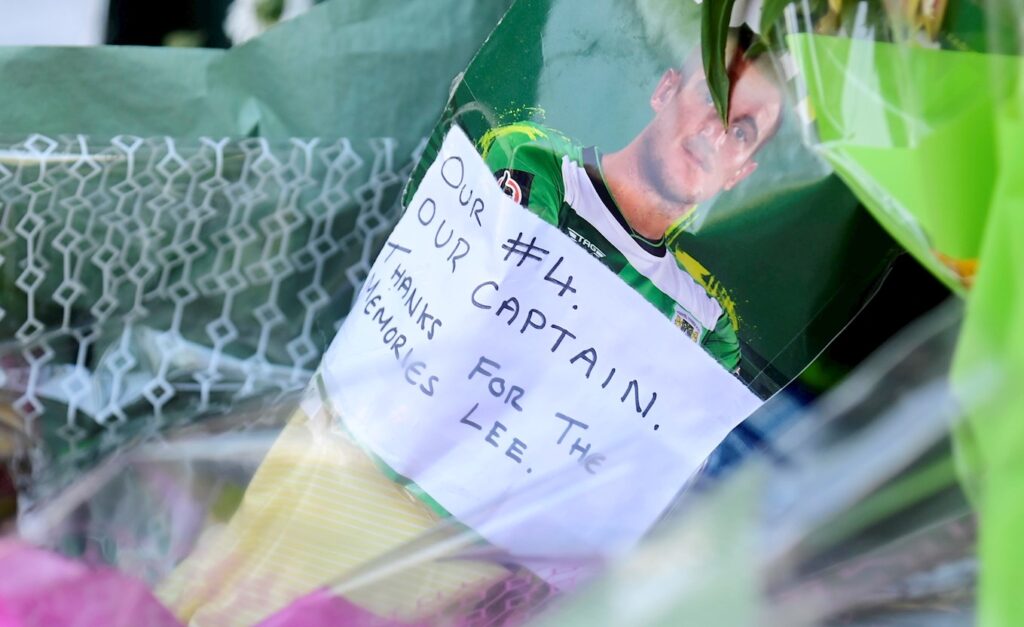 OUR #4.
OUR CAPTAIN.
THANKS FOR THE
MEMORIES LEE.
STAG